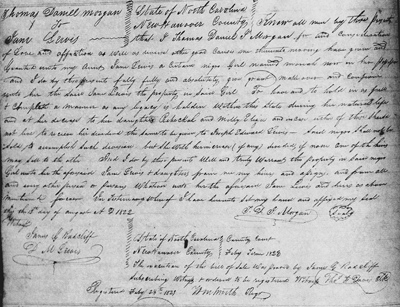 Thomas Daniel Morgan
to
Jane Lewis
State of North Carolina
New Hanover County
Know all men by these presents
that I Thomas Daniel F Morgan for and Consideration
of Love and affection as well as several other good Causes me thereunto moving have given and
Granted unto my Aunt Jane Lewis a Certain negro Girl named now in her possession
and I do by these presents fully fully and absolutely give grant make over and Confirm
unto her the said Jane Lewis the property in said Girl To have and to hold in as full
& Complete a manner as any legacy is holden within this State during her natural life
and at her decease to her daughters Rebeckah and Milly Eliza and
not her to serve his
sold, to accomplish such division but she with her increase (if any) divided, if more one of them
may fall to the other And I do by this private Will and truly Warrant the property in said negro
Girl unto her the aforesaid Jane Lewis & daughters from me my heirs and assigns and from all
and every other person or persons Whatsoever unto her the aforesaid Jane Lewis and heirs as above
mentioned forever In testimony whereof I have hereunto set my hand and affixed my seal
this the 8th day of August A D 1822
T. D. F. Morgan (Seal)
James G Radcliff
Lewis
State of North Carolina County Court
New Hanover County Feby Term 1823
The execution of this bill of sale was proved by James G Radcliff
subscribing Witness & ordered to be registered Witness
Registered Feby 1823